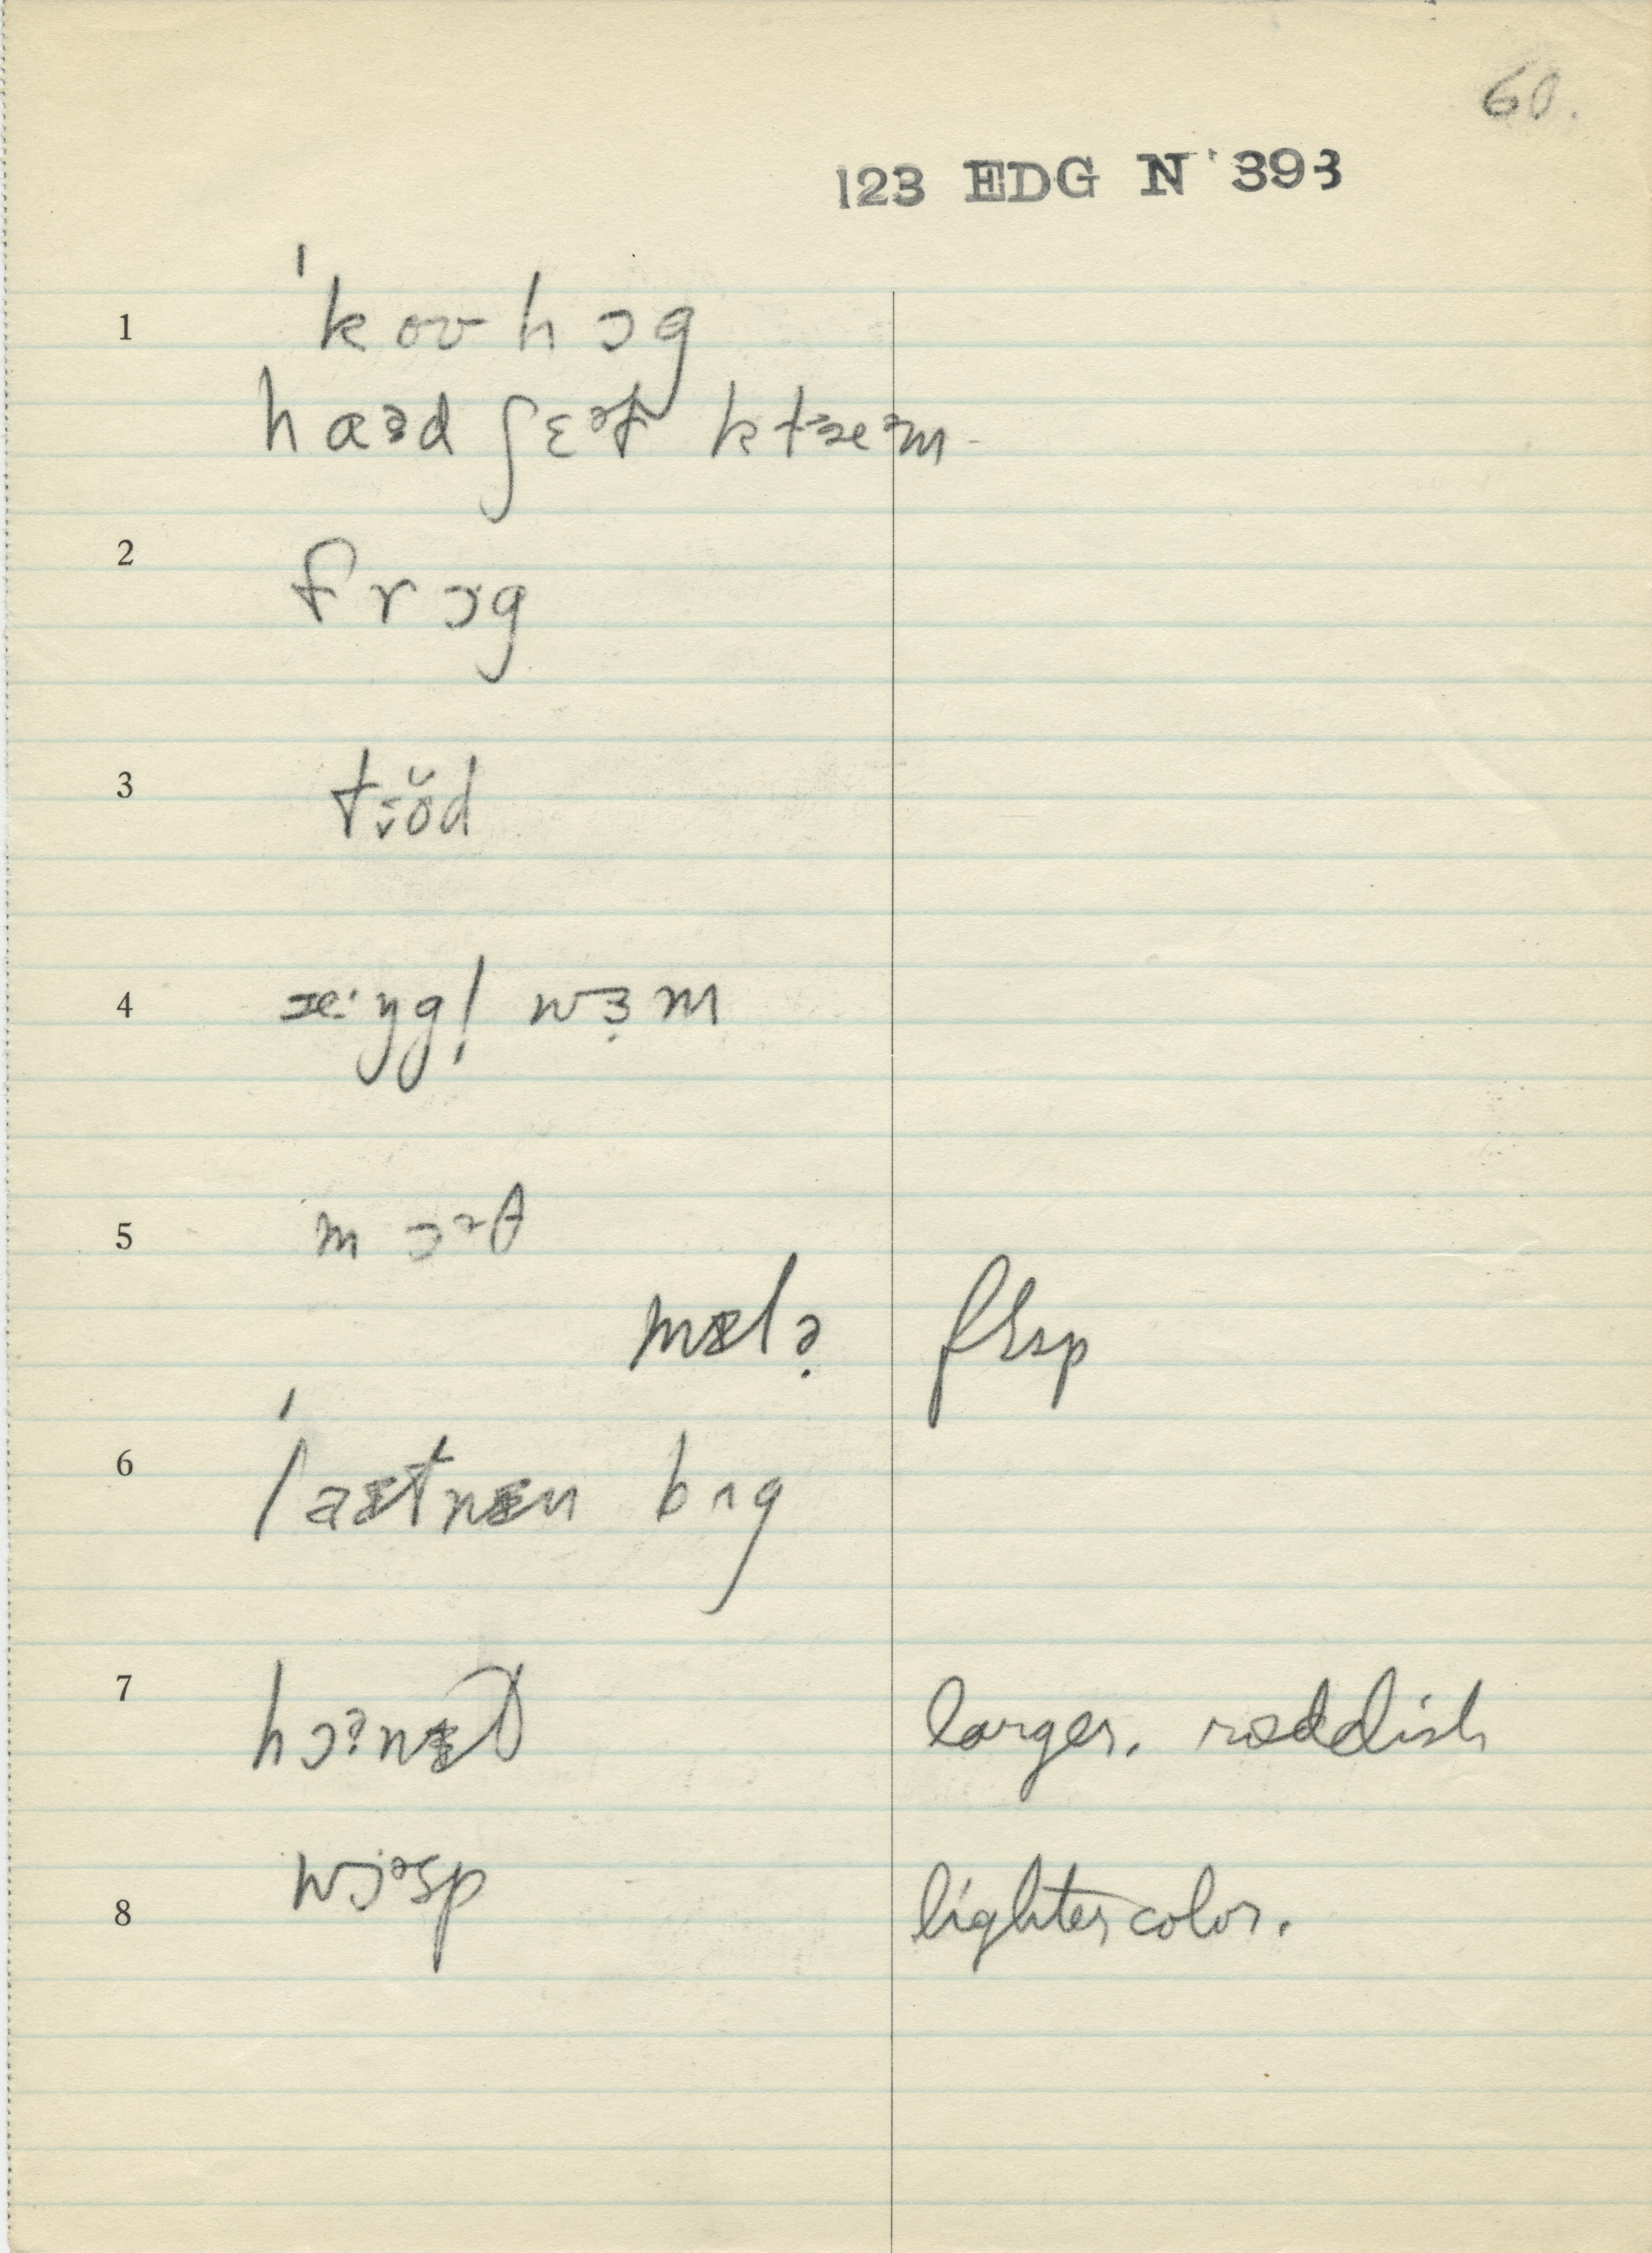 60.
123 EDG N 393
1 ˈkoʊhɔg
haɚd ʃɛᵊɫ klæᵊm
2 frɔg
3 tɔŏd
4 æ·ŋgḷ wɜ̣m
5 mɔᵊθ
mɪlɚ
6 ˈlaɪtnɪn bʌg
7 hɔɚnɪt larger. reddish
8 wɔᵊsp lighter color.